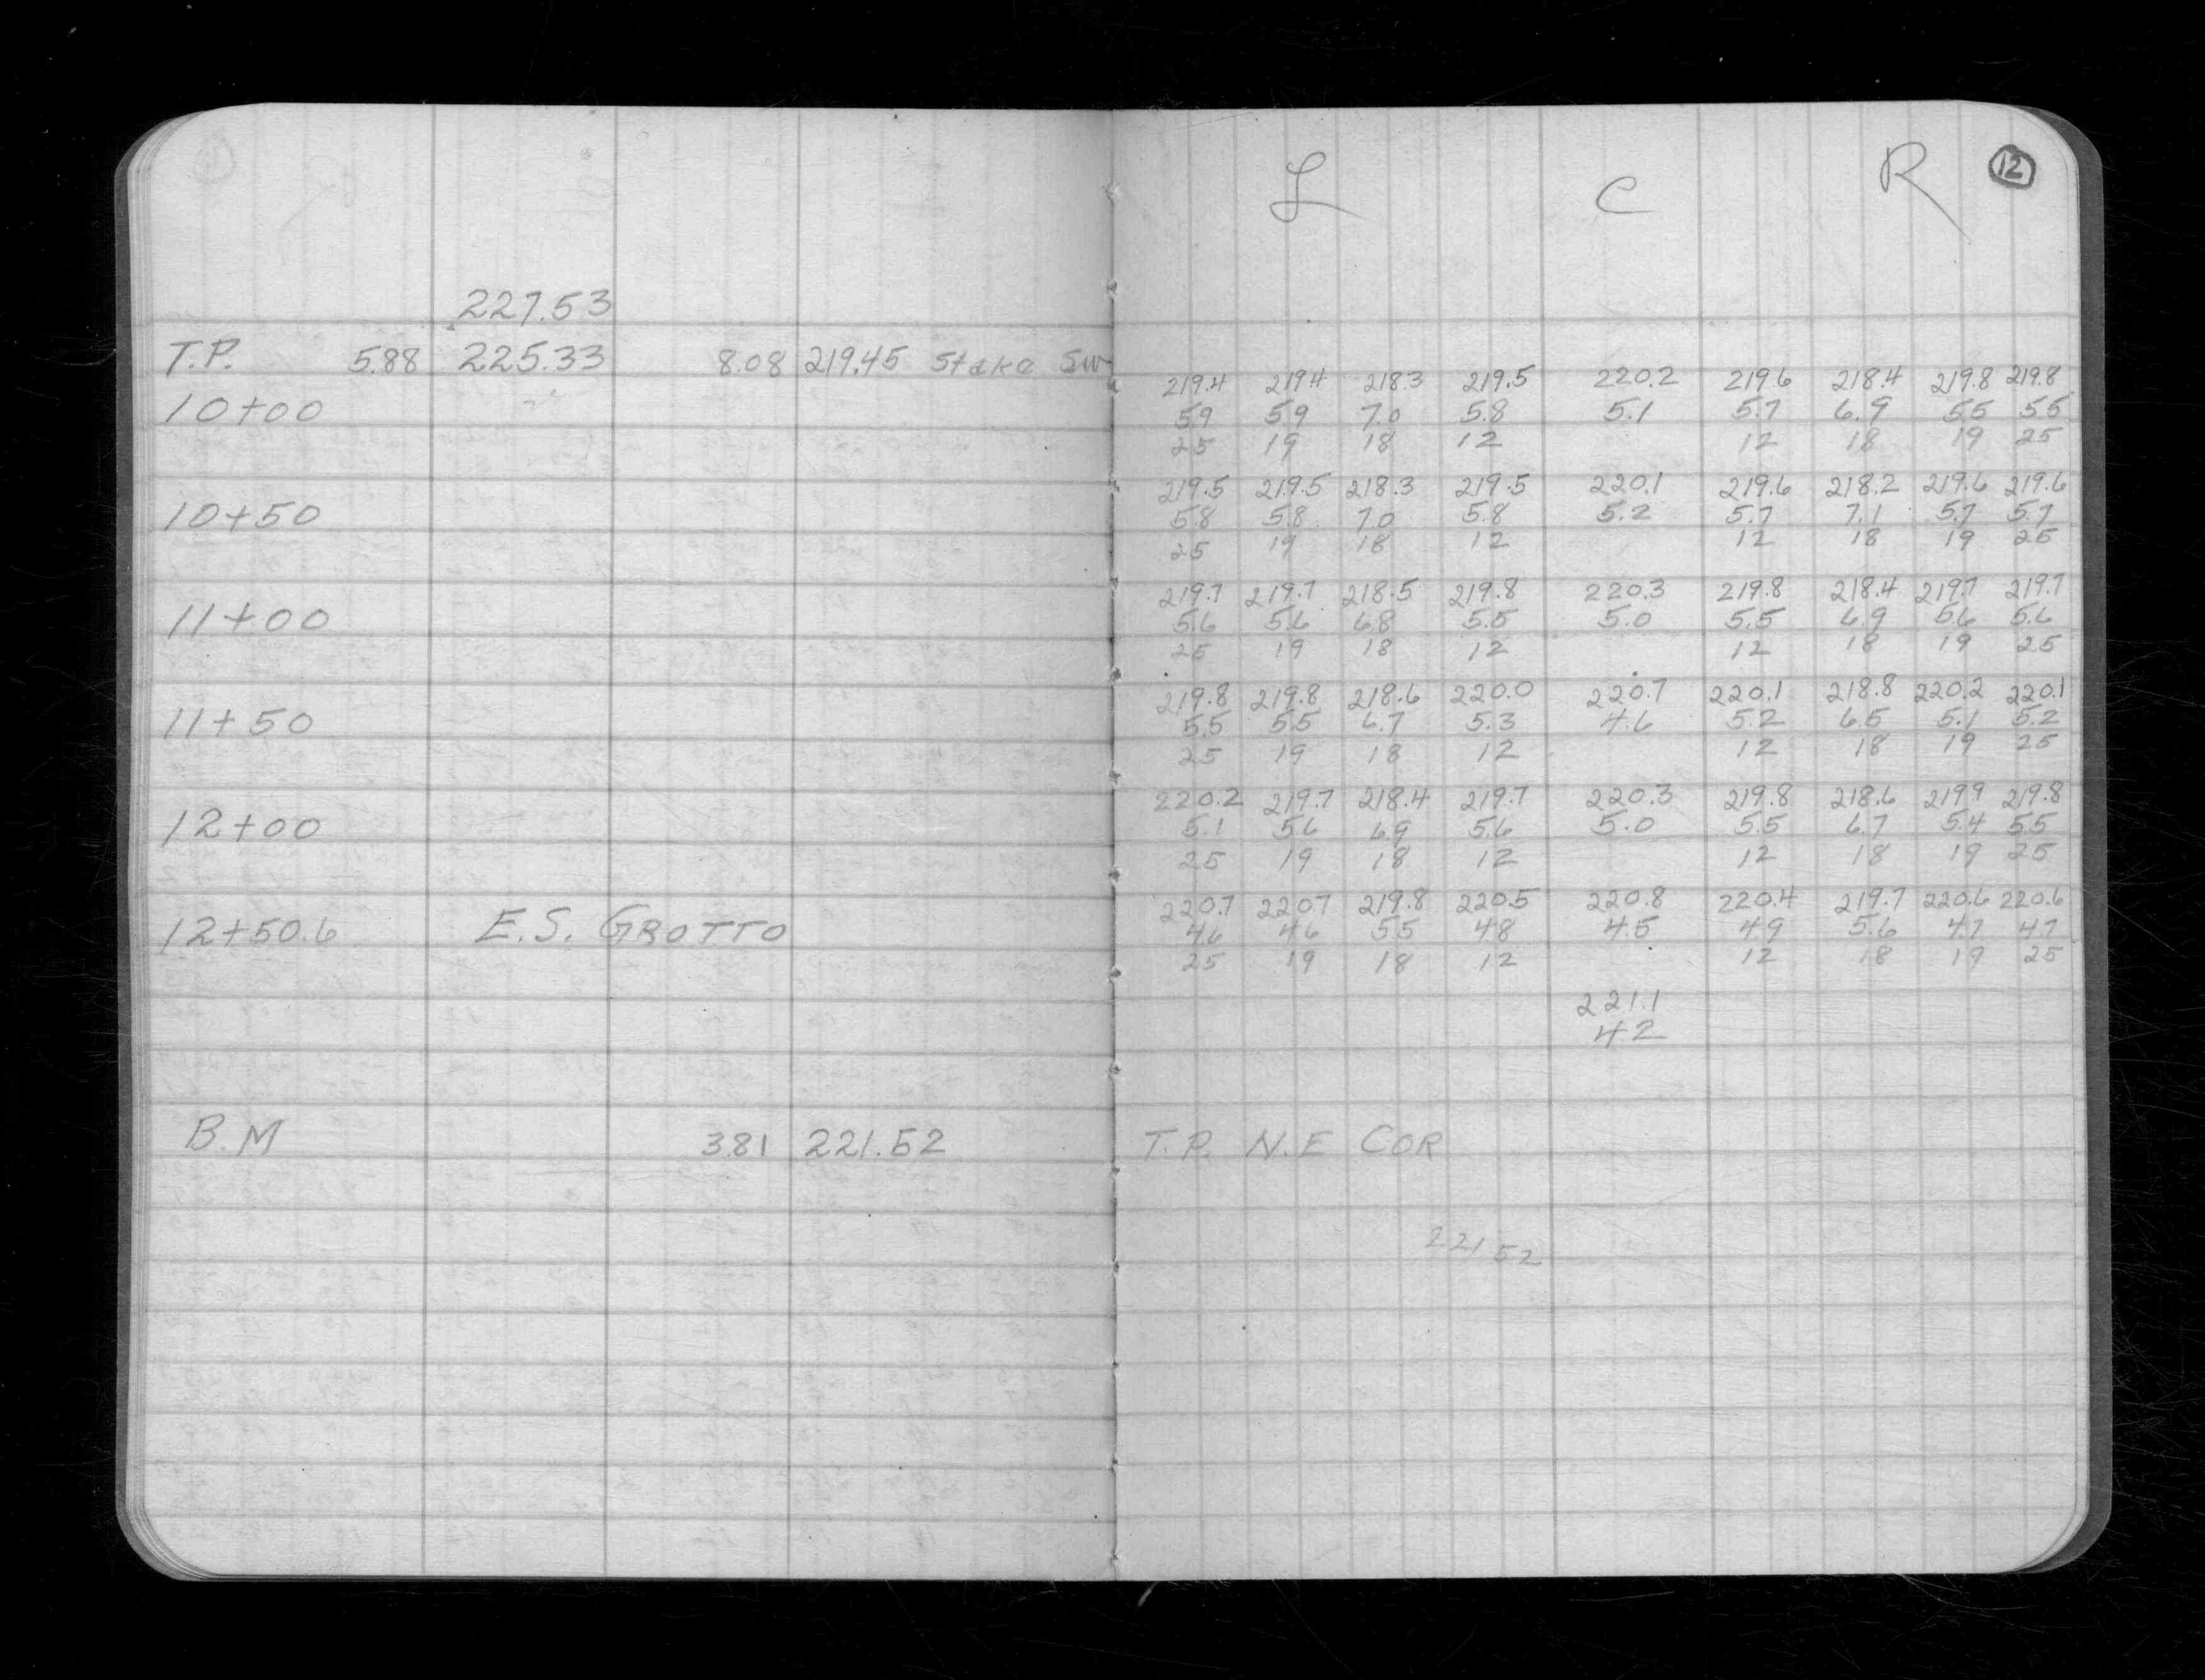 L C R 12
227.53
T.P. 5.88 225.33 8.08 219.45 Stake SW
219.4 219.4 218.3 219.5 220.2 219.6 218.4 219.8 219.8
10+00 5.9 5.9 7.0 5.8 5.1 5.7 6.9 5.5 5.5
25 19 18 12 12 18 19 25
219.5 219.5 218.3 219.5 220.1 219.6 218.2 219.6 219.6
10+50 5.8 5.8 7.0 5.8 5.2 5.7 7.1 5.7 5.7
25 19 18 12 12 18 19 25
219.7 219.7 218.5 219.8 220.3 219.8 218.4 219.7 219.7
11+00 5.6 5.6 6.8 5.5 5.0 5.5 6.9 5.6 5.6
25 19 18 12 12 18 19 25
219.8 219.8 218.6 220.0 220.7 220.1 218.8 220.2 220.1
11+50 5.5 5.5 6.7 5.3 4.6 5.2 6.5 5.1 5.2
25 19 18 12 12 18 19 25
220.2 219.7 218.4 219.7 220.3 219.8 218.6 219.9 219.8
12+00 5.1 5.6 6.9 5.6 5.0 5.5 6.7 5.4 5.5
25 19 18 12 12 18 19 25
220.7 220.7 219.8 220.5 220.8 220.4 219.7 220.6 220.6
12+50.6 E.S. GROTTO 4.6 4.6 5.5 4.8 4.5 4.9 5.6 4.7 4.7
25 19 18 12 12 18 19 25
221.1
4.2
B.M 3.81 221.52 T.P. N.E COR
221 52